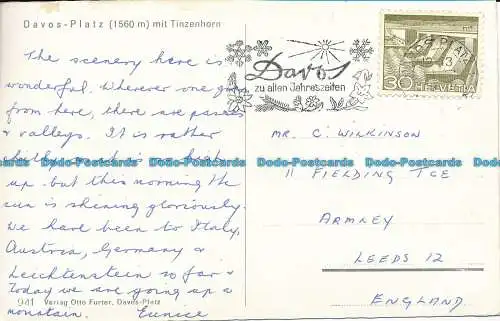 Davos-Platz (1560 m) mit Tinzenhorn
The scenery here is
wonderful. Wherever one goes
from here, there are passes
& valleys. It is rather
up. but this morning the
sun is shining gloriously.
We have been to Italy,
Austria, Germany &
Leichtenstein so far &
Today we are going up a
mountain. Eunice
941 Verlag Otto Furter, Davos-Platz
Davos
zu allen Jahreszeiten
30
HELVETIA
MR. C. WILKINSON
11 FIELDING TCE
ARMLEY
LEEDS 12
ENGLAND.
Dodo-Postcards Dodo-Postcards Dodo-Postcards
Dodo-Postcards Dodo-Postcards Dodo-Postcards